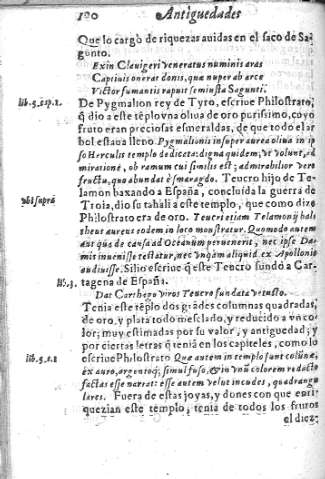 190 Antiguedades
Que lo cargò de riquezas auidas en el saco de Sa-
gunto.
Exin Clauigeri veneratus numinis aras
Captiuis onerat donis, quæ nuper ab arce
Victor fumantis rapuit semiusta Sagunti.
lib. 5. cap. 1. De Pygmalion rey de Tyro, escriue Philostrato,
q̃ dio a este tẽplo vna oliua de oro purissimo, cuyo
fruto eran preciosas esmeraldas, de que todo el ar
bol estaua lleno. Pygmalionis insuper aurea oliua in ip
so Herculis templo dedicata: digna quidem, vt volunt, ad
miratione, ob ramum cui similis est; admirabilior vero
fructu, quo abundat è smaragdo. Teucro hijo de Te-
lamon baxando a España, concluida la guerra de
vbi suprà Troia, dio su tahali a este templo, que como dize
Philostrato era de oro. Teucri etiam Telamonij bal-
theum aureum eodem in loco monstratur. Quomodo autem
aut qua de causa ad Oceanum peruenerit, nec ipse Da-
mis inuenisse testatur, nec vnquam aliquid ex Apollonio
audiuisse. Silio escriue q̃ este Teucro fundò a Car-
lib. 3. tagena de España.
Dat Carthago viros Teucro fundata vetusto.
Tenia este tẽplo dos grãdes columnas quadradas,
de oro, y plata todo mezclado, y reducido a vn co
lor; muy estimadas por su valor, y antiguedad; y
por ciertas letras q̃ tenia en los capiteles, como lo
lib. 5. c. 1 escriue Philostrato Quæ autem in templo sunt colũnæ,
ex auro, argentoq; simul fuso, & in vnũ colorem redacto
factas esse narrat: esse autem velut incudes, quadrangu
lares. Fuera de estas joyas, y dones con que enri-
quezian este templo; tenia de todos los frutos
el diez-